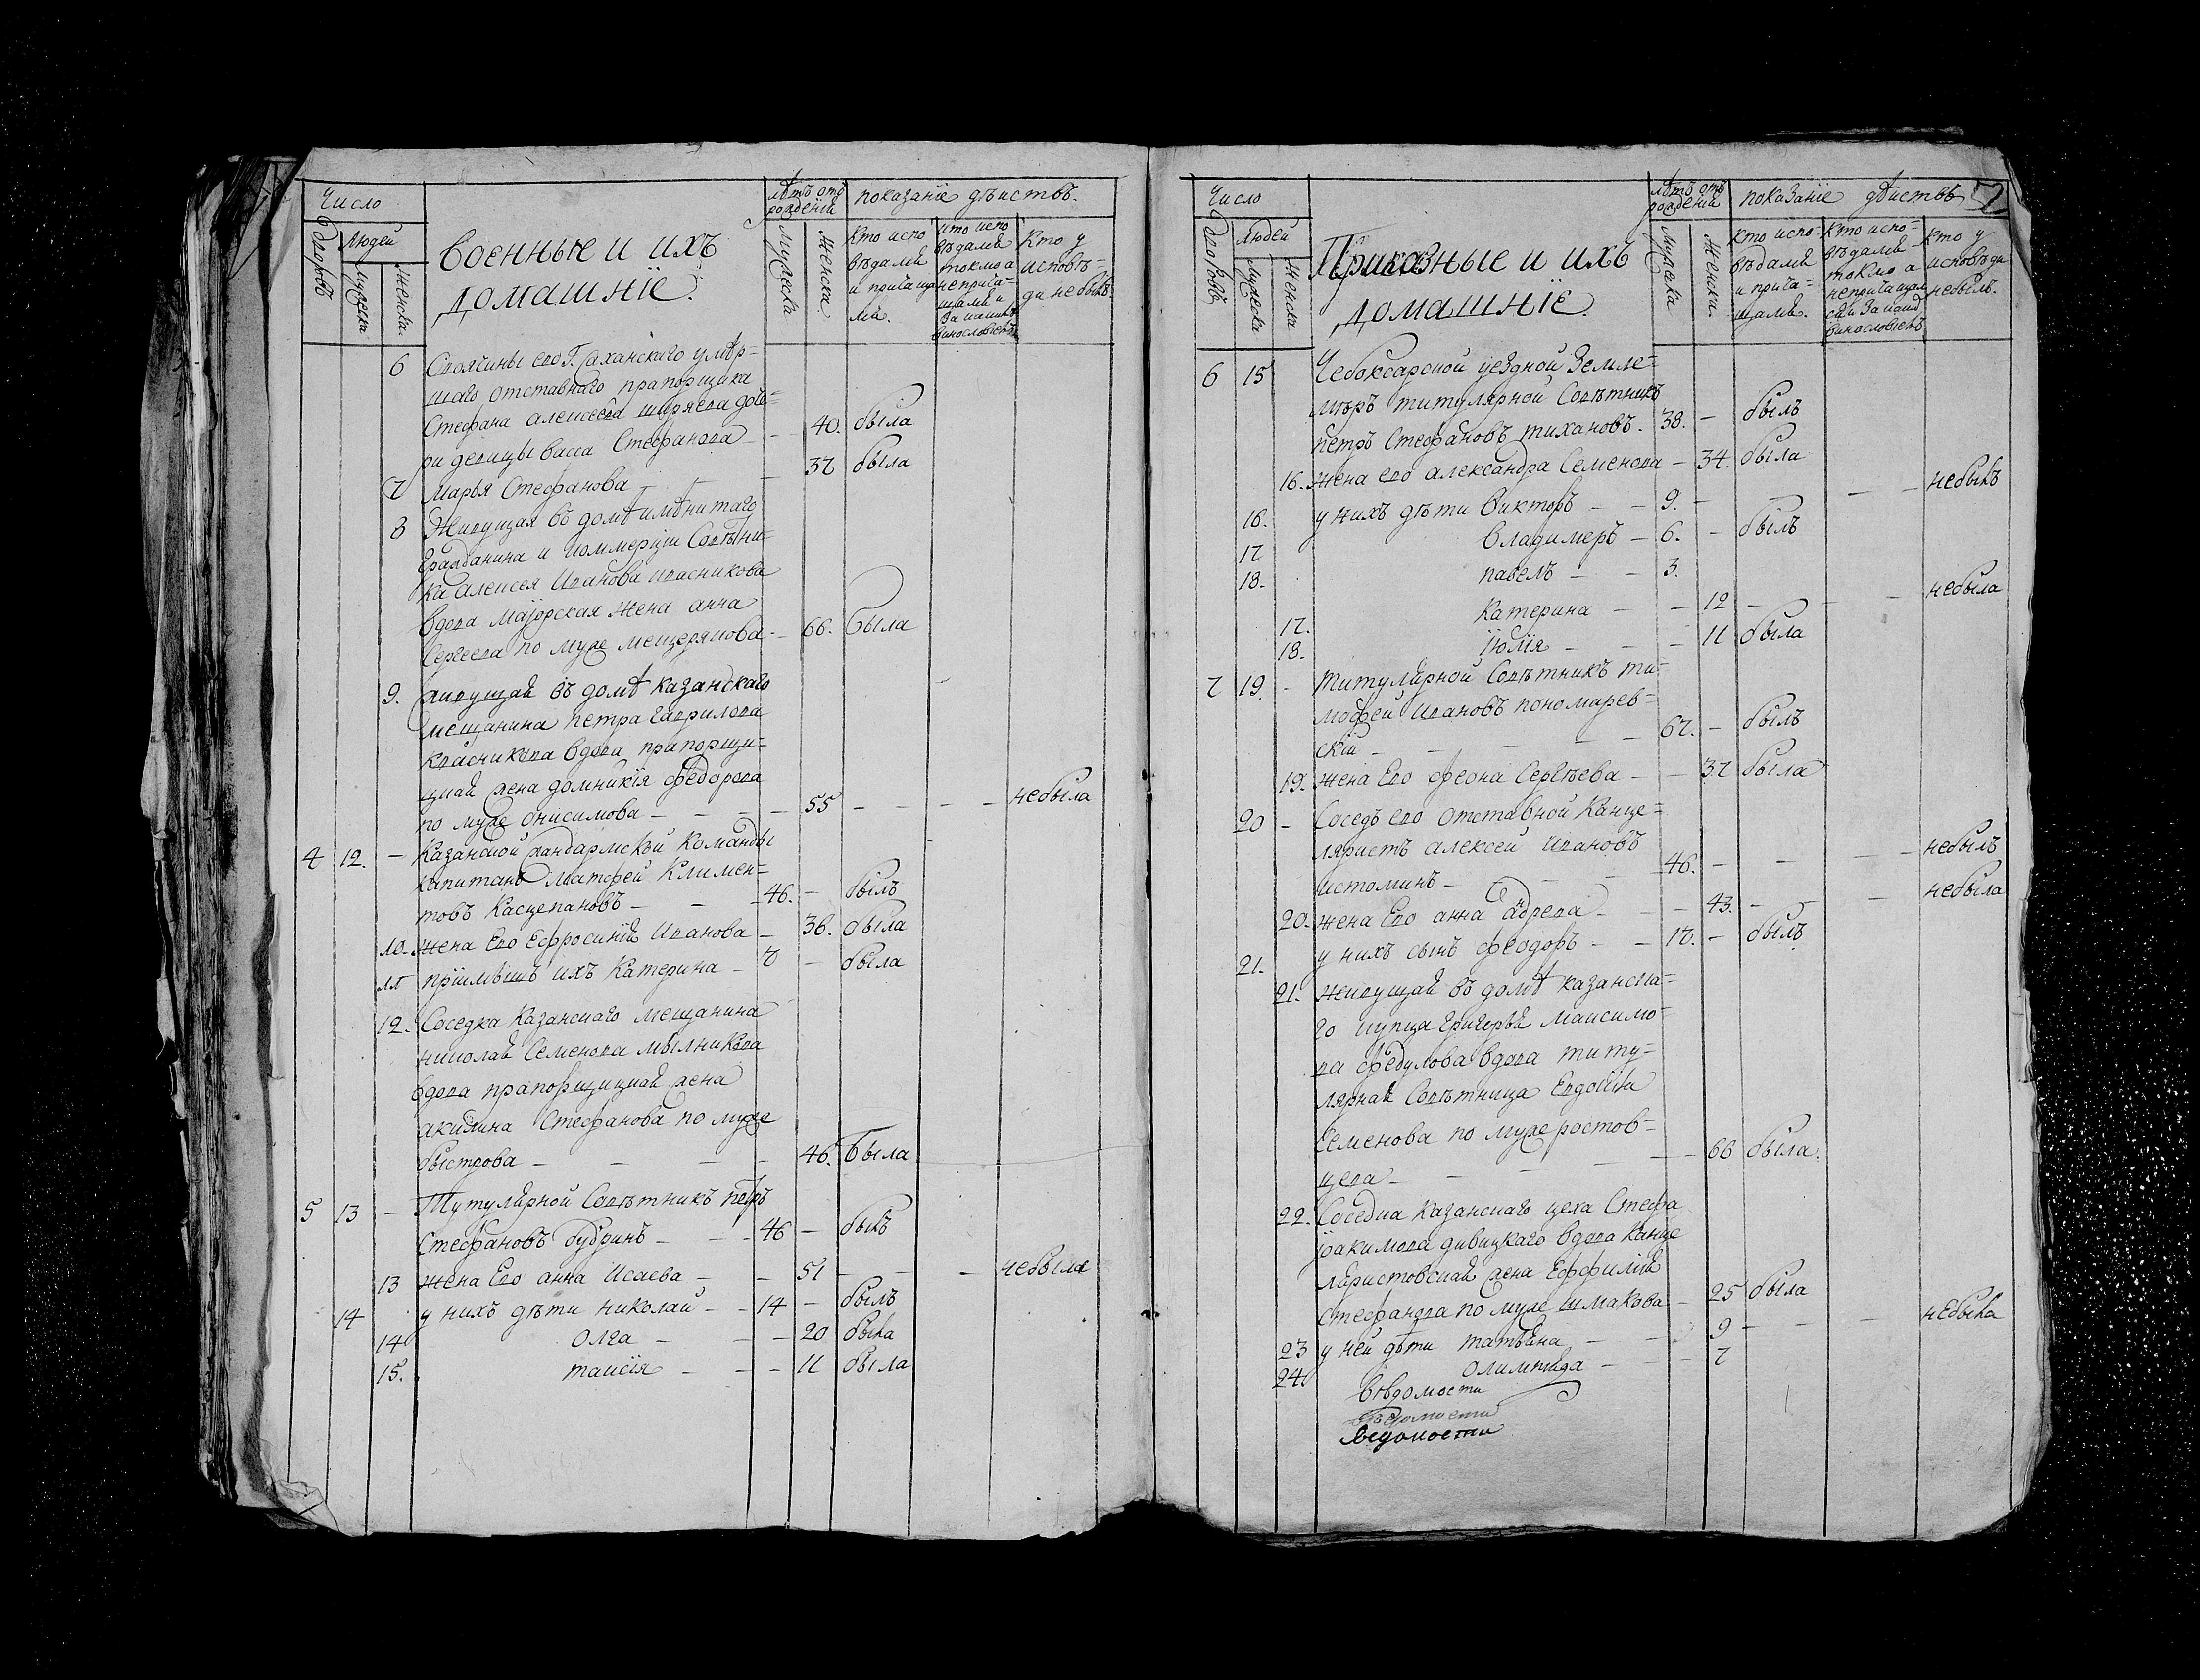 Число
лѣтъ отъ рожденiй
показанiе дѣиствъ.
дворовъ
людей
мужеска
женска.
военные и ихъ
домашнiе.
мужеска
женска
кто испо
вѣдали
и причащ
ли.
кто испо
вѣдали
токмо а
неприча-
щали и
за каким
винословiемъ
Кто у
исповѣ-
ди небылъ
6 Своячины его Г.
шаго отставнаго прапорщика
Стефана алексеева ширяева доче-
ри девицы васса Стефанова - - 40. была
7 марья Стефанова - - - 37 была
8 Живущая въ домѣ имѣнитаго
Гражданина и коммерцiи Совѣтни-
ка алексея Иванова квасникова
вдова маiорская жена анна
Сергеева по муже мещерякова - 66. была
9. живущай въ домѣ казанскаго
мещанина петра гаврилова
квасникова вдова прапорщи-
цкай жена домникiя федорова
по муже онисимова - - - - 55 - - - - небыла
4 12. - казанской жандармской команды
капитанъ матфей Климен-
товъ Касцепановъ - - - 46. - былъ
10. жена Его Ефросинiя Иванова - 36. была
11 прiимышъ ихъ Катерина - 7 - была
12. Соседка казанскаго мещанина
николая Семенова мылникова
вдова прапорщицкай жена
акилина Стефанова по муже
быстрова - - - - 46. была
5 13 - Тутулярной Совѣтникъ петръ
Стефановъ бубринъ - - - 46 - былъ
13 жена Его анна Исаева - - 51 - - - небыла
14 у нихъ дѣти николай - - 14 - былъ
14 олга - - - 20 была
15. таисiя - - - 11 была
Число
лѣтъ отъ рожденiя
показанiе дѣиствъ
7
дворовъ
людей
мужеска
женска
Приказные и ихъ
домашнiе.
мужеска
женски.
кто испо-
вѣдали
и прича-
щали.
кто испо-
вѣдали
токмо а
непричащал
сѧ и за каки
винословiемъ
кто у
исповѣди
небылъ.
6 15 Чебоксарской уездной Земле-
мѣръ титулярной Совѣтникъ
петръ Стефановъ тихановъ. 38. - былъ
16. жена его александра Семенова - 34. была
16. у нихъ дѣти викторъ - - 9. - - - - небылъ
17 владимеръ - 6. - былъ
18. павелъ - - 3.
17. Катерина - - 12 - - - небыла
18. Iюлiя - - - 11 была
7 19. - титулярной Совѣтникъ ти-
мофеи Ивановъ пономарев-
скiи - - - - - 67. - былъ
19. жена Его феона Сергѣева - - 37 была
20 - Соседъ его отставной Канце-
ляристъ алексей Ивановъ
истоминъ - - - 46. - - - - небылъ
20. жена Его анна адреева - - - 43. - - - небыла
21. у нихъ сынъ феодоръ - - 17. - былъ
21. живущай въ домѣ казанска-
го купца григорья максимо-
ва федулова вдова титу-
лярнай Совѣтница Евдокiя
Семенова по муже ростов-
цева - - - - - 66 была.
22. Соседка казанскаго цеха Стефа
iоакимова дивицкаго вдова канце
ляристовскай жена Ефимiя
Стефанова по муже шмакова - 25 была
23 у ней дѣти татьяна - - - 9 - - - небыла
24. олимпiада - - - 7
Вѣдомости
вѣдомости
ведомости